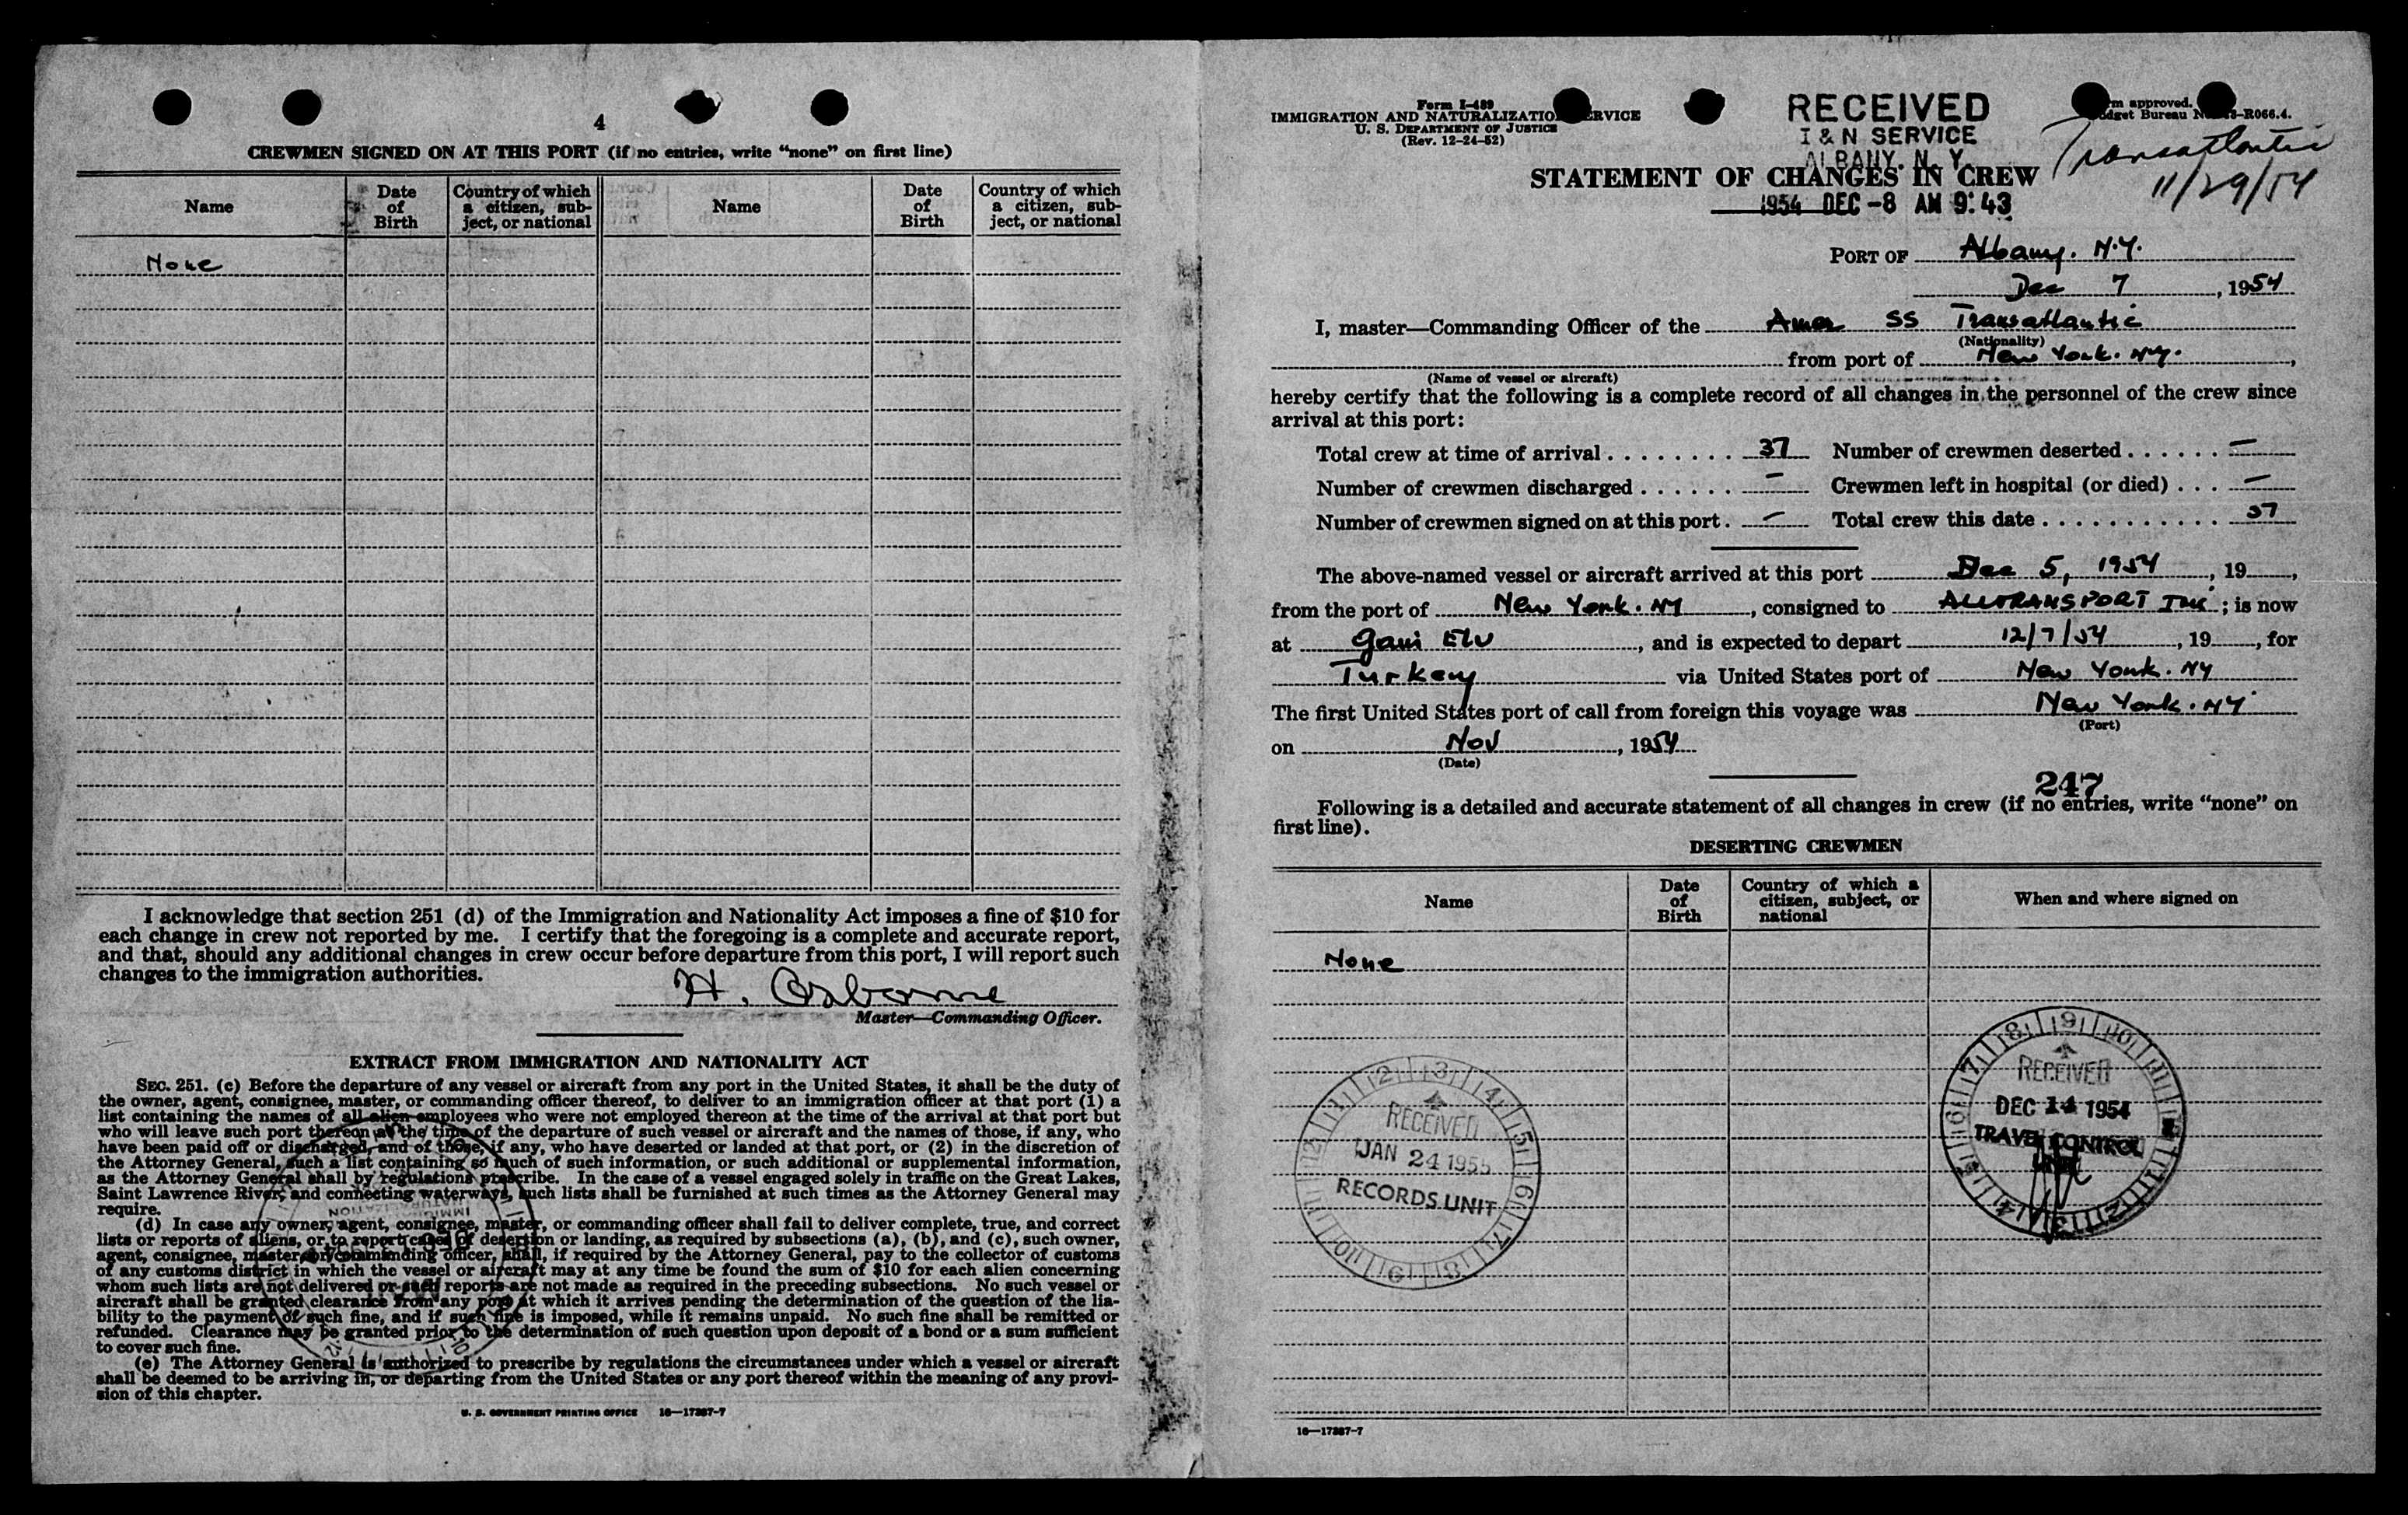 4
CREWMEN SIGNED ON AT THIS PORT (if no entries, write “none” on first line)
Name
Date of Birth
Country of which a citizen, subject, or national
Name
Date of Birth
Country of which a citizen, subject, or national
None
I acknowledge that section 251 (d) of the Immigration and Nationality Act imposes a fine of $10 for
each change in crew not reported by me. I certify that the foregoing is a complete and accurate report,
and that, should any additional changes in crew occur before departure from this port, I will report such
changes to the immigration authorities.
H. Osborne
Master—Commanding Officer.
EXTRACT FROM IMMIGRATION AND NATIONALITY ACT
SEC. 251. (c) Before the departure of any vessel or aircraft from any port in the United States, it shall be the duty of
the owner, agent, consignee, master, or commanding officer thereof, to deliver to an immigration officer at that port (1) a
list containing the names of all alien employees who were not employed thereon at the time of the arrival at that port but
who will leave such port thereon at the time of the departure of such vessel or aircraft and the names of those, if any, who
have been paid off or discharged, and of those, if any, who have deserted or landed at that port, or (2) in the discretion of
the Attorney General, such a list containing so much of such information, or such additional or supplemental information,
as the Attorney General shall by regulations prescribe. In the case of a vessel engaged solely in traffic on the Great Lakes,
Saint Lawrence River, and connecting waterways, such lists shall be furnished at such times as the Attorney General may
require.
(d) In case any owner, agent, consignee, master, or commanding officer shall fail to deliver complete, true, and correct
lists or reports of aliens, or to report cases of desertion or landing, as required by subsections (a), (b), and (c), such owner,
agent, consignee, master, or commanding officer, shall, if required by the Attorney General, pay to the collector of customs
of any customs district in which the vessel or aircraft may at any time be found the sum of $10 for each alien concerning
whom such lists are not delivered or such reports are not made as required in the preceding subsections. No such vessel or
aircraft shall be granted clearance from any port at which it arrives pending the determination of the question of the lia-
bility to the payment of such fine, and if such fine is imposed, while it remains unpaid. No such fine shall be remitted or
refunded. Clearance may be granted prior to the determination of such question upon deposit of a bond or a sum sufficient
to cover such fine.
(e) The Attorney General is authorized to prescribe by regulations the circumstances under which a vessel or aircraft
shall be deemed to be arriving in, or departing from the United States or any port thereof within the meaning of any provi-
sion of this chapter.
U. S. GOVERNMENT PRINTING OFFICE 16—17387-7
Form I-489
IMMIGRATION AND NATURALIZATION SERVICE
U. S. DEPARTMENT OF JUSTICE
(Rev. 12-24-52)
RECEIVED
I & N SERVICE
ALBANY. N. Y.
1954 DEC -8 AM 9:43
approved.
Budget Bureau R066.4.
Transatlantic
11/29/54
STATEMENT OF CHANGES IN CREW
PORT OF Albany. N.Y.
Dec 7, 1954
I, master—Commanding Officer of the Amer SS Transatlantic
(Nationality)
from port of New York. NY.,
(Name of vessel or aircraft)
hereby certify that the following is a complete record of all changes in the personnel of the crew since
arrival at this port:
Total crew at time of arrival 37 Number of crewmen deserted —
Number of crewmen discharged — Crewmen left in hospital (or died) —
Number of crewmen signed on at this port. — Total crew this date 37
The above-named vessel or aircraft arrived at this port Dec 5, 1954, 19,
from the port of New York. NY, consigned to ALLTRANSPORT Inc; is now
at Grain Elv, and is expected to depart 12/7/54, 19, for
Turkey via United States port of New York. NY
The first United States port of call from foreign this voyage was New York. NY
(Port)
on Nov, 1954
(Date)
247
Following is a detailed and accurate statement of all changes in crew (if no entries, write “none” on
first line).
DESERTING CREWMEN
Name
Date of Birth
Country of which a citizen, subject, or national
When and where signed on
None
RECEIVED
JAN 24 1955
RECORDS UNIT
RECEIVED
DEC 14 1954
TRAVEL CONTROL
UNIT
16—17387-7